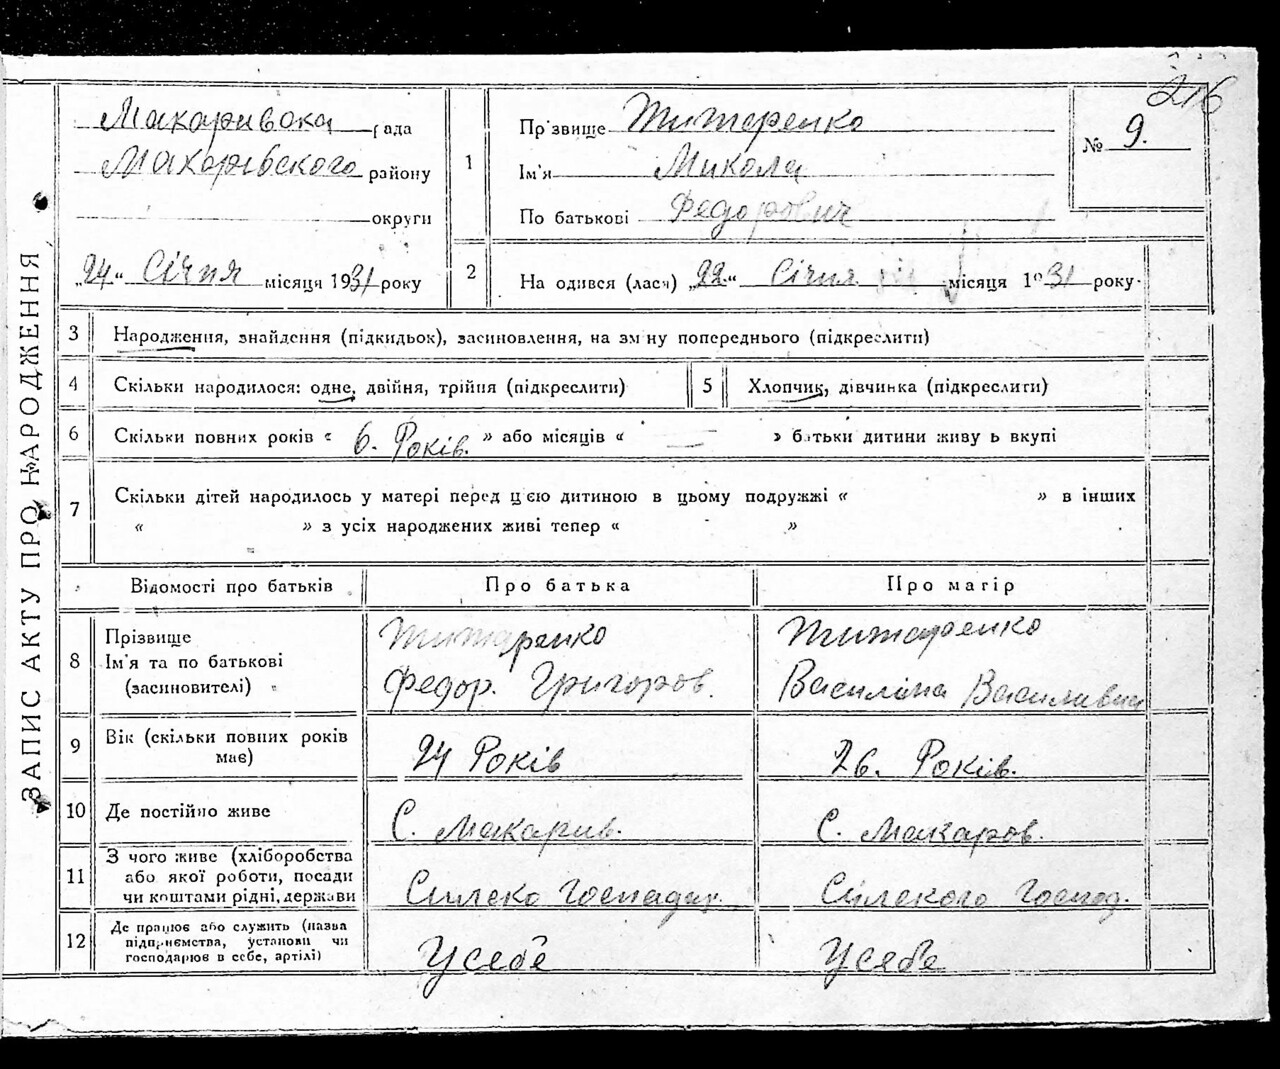 216
ЗАПИС АКТУ ПРО НАРОДЖЕННЯ
Макаривска рада
Макарівского району
округи
„24“ Січня місяця 1931 року
1 Прізвище Титаренко
Ім'я Микола
По батькові Федорович
№ 9.
2 Народився (лася) „22“ Січня місяця 1931 року.
3 Народження, знайдення (підкидьок), засиновлення, на зміну попереднього (підкреслити)
4 Скільки народилося: одне, двійня, трійня (підкреслити) 5 Хлопчик, дівчинка (підкреслити)
6 Скільки повних років « 6. Років. » або місяців « — » батьки дитини живуть вкупі
7 Скільки дітей народилось у матері перед цією дитиною в цьому подружжі « » в інших
« » з усіх народжених живі тепер « »
Відомості про батьків Про батька Про матір
8 Прізвище Титаренко Титаренко
Ім'я та по батькові Федор. Григоров. Василіна
(засиновителі)
9 Вік (скільки повних років 24 Років 26. Років.
має)
10 Де постійно живе С. Макарив. С. Макаров.
11 З чого живе (хліборобства
або якої роботи, посади
чи коштами рідні, держави Силско Господар. Сілского Господ.
12 Де працює або служить (назва
підприємства, установи чи
господарює в себе, артілі) Усебе Усебе